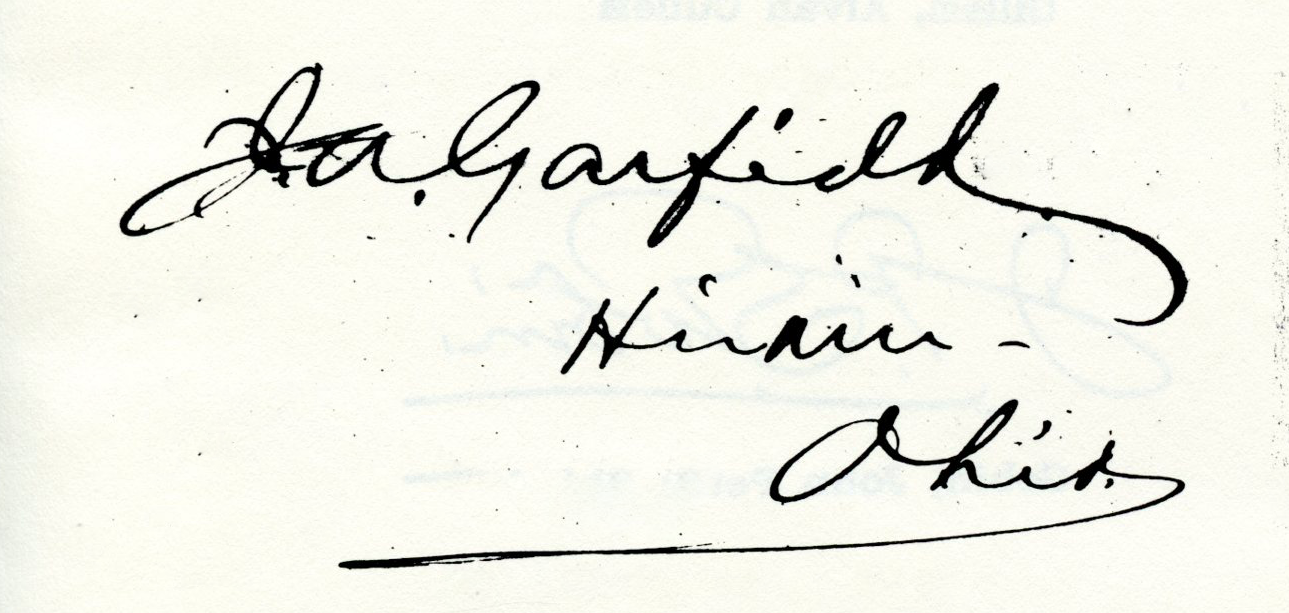 J. A. Garfield
Hiram -
Ohio.